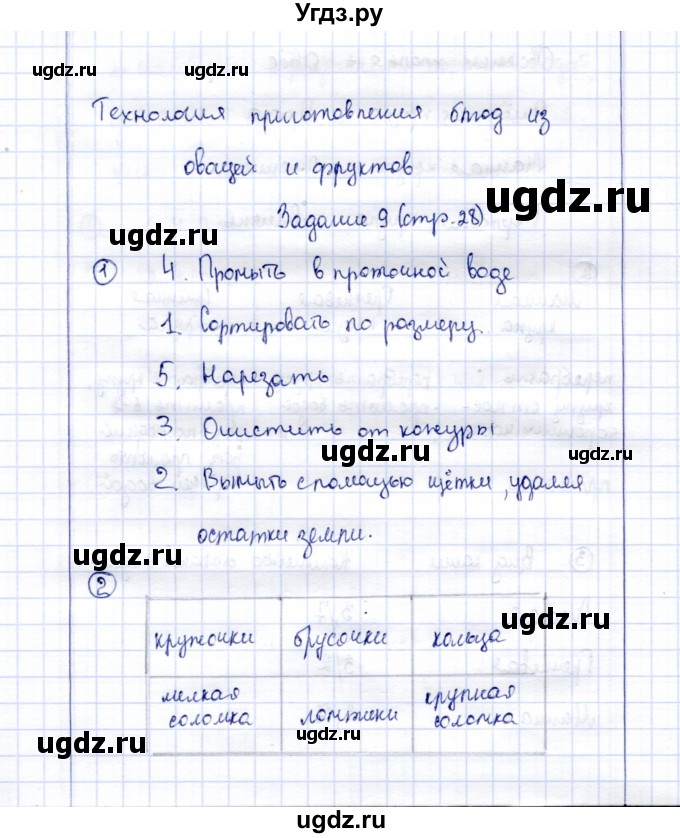 Угдз.ру
ugdz.ru ugdz.ru
Технология приготовления блюд из
овощей и фруктов
ugdz.ru
Задание 9 (стр. 28)
ugdz.ru
1 4. Промыть в проточной воде
1. Сортировать по размеру.
5. Нарезать
3. Очистить от кожуры
ugdz.ru ugdz.ru
2. Вымыть с помощью щётки, удаляя
остатки земли.
ugdz.ru
2
кружочки брусочки кольца
ugdz.ru
мелкая соломка ломтики крупная соломка
ugdz.ru ugdz.ru
ugdz.ru